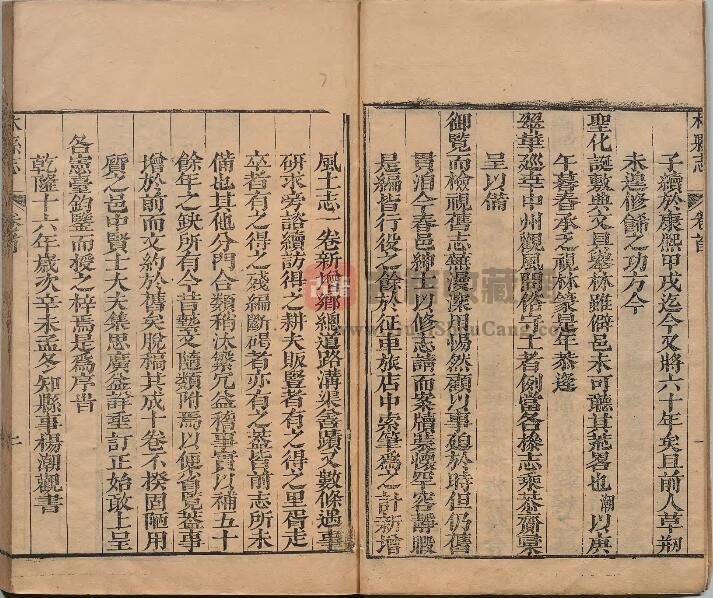 林縣志 卷首 一
子續於康熙甲戌迄今又將六十年矣且前人草刱
未遑修飾之功方今
聖化誕敷典文具舉林雖僻邑未可聽其荒畧也潮以庚
午暮春承乏視林篆是年恭逢
翠華廵幸中州觀風問俗守土者例當各條志乘恭齎彙
呈以備
御覽而檢視舊志蕪漫案周惕然顧以事廹於時但仍舊
貫洎今春邑紳士以修志請而案牘裝懷罕容靜暇
是編皆行役之餘於征車旅店中索筆爲之計新增
風土志一卷新增鄉總道路溝渠善蹟又數條遇事
研求旁諮續訪得之耕夫販豎者有之得之里胥走
卒者有之得之殘編斷碣者亦有之葢皆前志所未
備也其他分門合類稍汰繁冗益稽事實以補五十
餘年之缺所有今昔藝文隨類附焉以便省覽葢事
增於前而文約於舊矣脫稿共成十卷不揆固陋用
質之邑中賢士大夫集思廣益詳埀訂正始敢上呈
各憲臺鈞鑒而授之梓焉是爲序昔
乾隆十六年歲次辛未孟冬知縣事楊潮觀書
林縣志 卷首 二